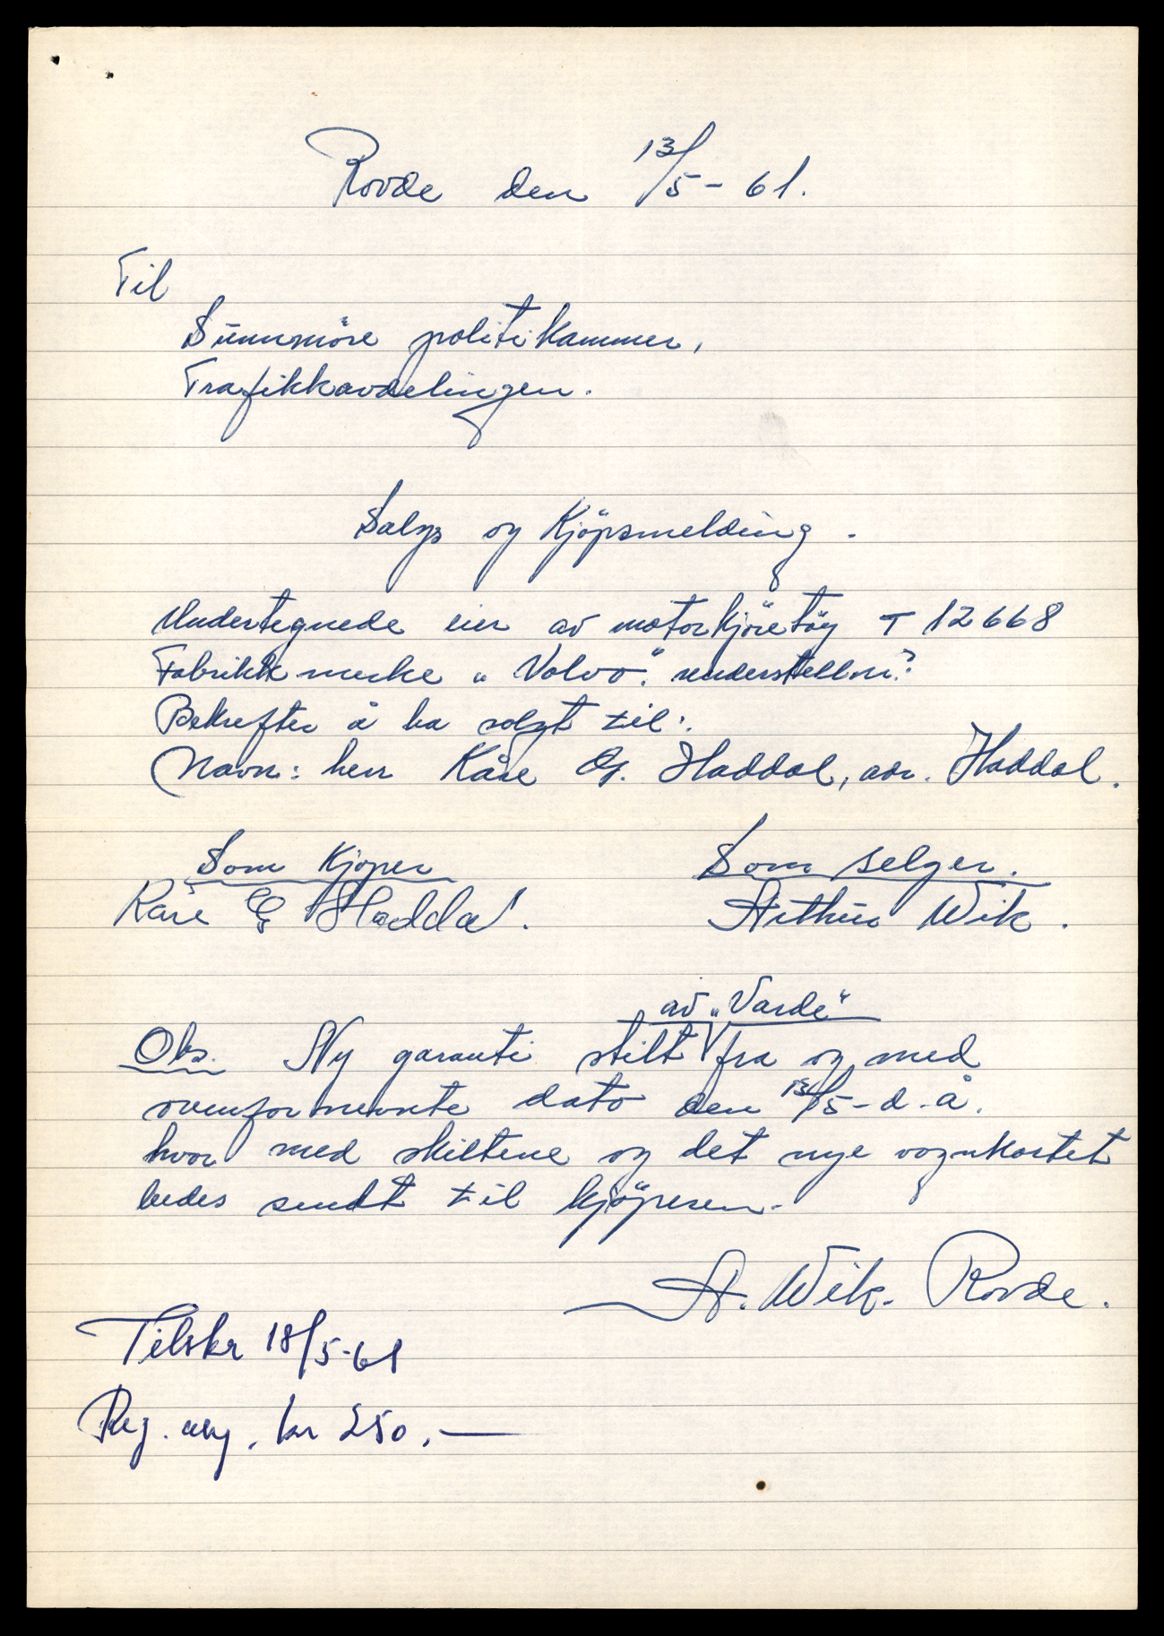 Rovde den 13/5 - 61.
Til
Sunnmöre politikammer,
Trafikkavdelingen.
Salgs og Kjöpsmelding.
Undertegnede eier av motorkjöretöy T 12668
Fabrikkmerke „Volvo". understellnr:
Bekrefter å ha solgt til:
Navn: herr Kåre G. Haddal, adr. Haddal.
Som Kjöper Som selger.
Kåre G Haddal. Arthur Wik.
av „Varde"
Obs. Ny garanti stilt fra og med
ovenfornevnte dato den 13/5 - d.å.
hvor med skiltene og det nye vognkortet
bedes sendt til kjöperen.
A. Wik. Rovde.
Tilskr 18/5-61
Reg. avg. kr 250,—